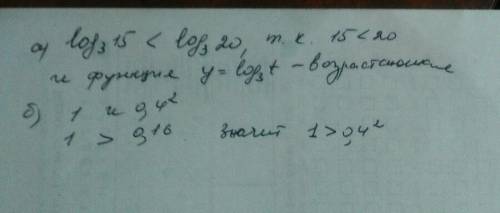 а) log₃15 < log₃20, т.к. 15 < 20
и функция y = log₃t - возрастающая
б) 1 и 0,4²
1 > 0,16 значит 1 > 0,4²